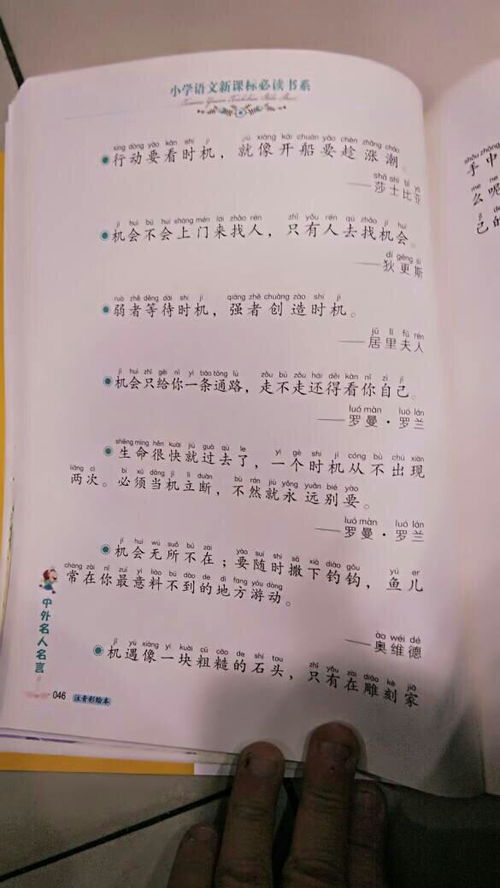 小学语文新课标必读书系
xíng dòng yào kàn shí jī jiù xiàng kāi chuán yào chèn zhǎng cháo
行动要看时机，就像开船要趁涨潮。
shā shì bǐ yà
——莎士比亚
jī huì bú huì shàng mén lái zhǎo rén zhǐ yǒu rén qù zhǎo jī huì
机会不会上门来找人，只有人去找机会。
dí gēng sī
——狄更斯
ruò zhě děng dài shí jī qiáng zhě chuàng zào shí jī
弱者等待时机，强者创造时机。
jū lǐ fū rén
——居里夫人
jī huì zhǐ gěi nǐ yì tiáo tōng lù zǒu bù zǒu hái děi kàn nǐ zì jǐ
机会只给你一条通路，走不走还得看你自己。
luó màn luó lán
——罗曼·罗兰
shēng mìng hěn kuài jiù guò qù le yí gè shí jī cóng bù chū xiàn
生命很快就过去了，一个时机从不出现
liǎng cì bì xū dāng jī lì duàn bù rán jiù yǒng yuǎn bié yào
两次。必须当机立断，不然就永远别要。
luó màn luó lán
——罗曼·罗兰
jī huì wú suǒ bú zài yào suí shí sā xià diào gōu yú ér
机会无所不在；要随时撒下钓钩，鱼儿
cháng zài nǐ zuì yì liào bú dào de dì fang yóu dòng
常在你最意料不到的地方游动。
ào wéi dé
——奥维德
jī yù xiàng yí kuài cū cāo de shí tou zhǐ yǒu zài diāo kè jiā
机遇像一块粗糙的石头，只有在雕刻家
中外名人名言
046 注音彩绘本
shǒu zhōng
手中
me ne
么呢
己的